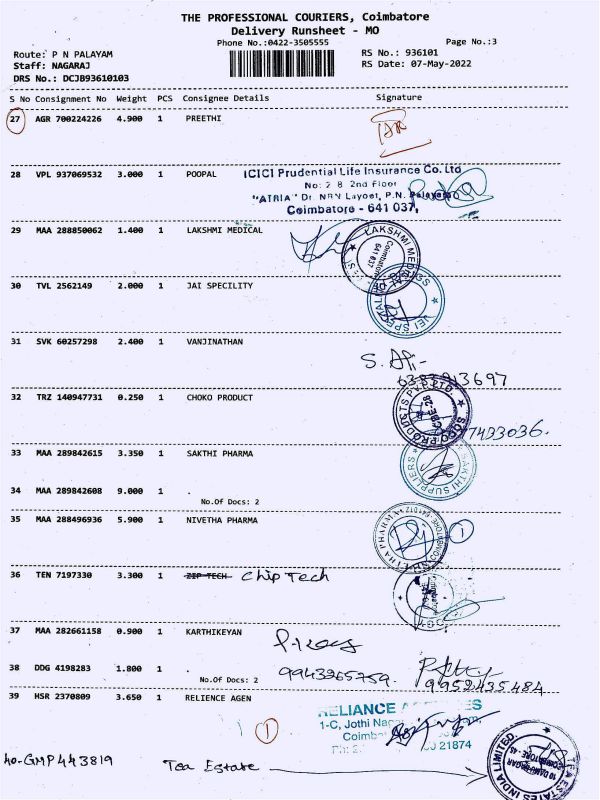 THE PROFESSIONAL COURIERS, Coimbatore
Delivery Runsheet - MO
Phone No.:0422-3505555
Page No.:3
Route: P N PALAYAM
RS No.: 936101
Staff: NAGARAJ
RS Date: 07-May-2022
DRS No.: DCJB93610103
S No Consignment No Weight PCS Consignee Details Signature
27 AGR 700224226 4.900 1 PREETHI
28 VPL 937069532 3.000 1 POOPAL
ICICI Prudential Life Insurance Co. Ltd
No: 2 8 2nd Floor
"ATRIA" Dr. NRN Layoet, P.N. Palayam
Coimbatore - 641 037,
29 MAA 288850062 1.400 1 LAKSHMI MEDICAL
LAKSHMI MEDICALS
Coimbatore
641 037
30 TVL 2562149 2.000 1 JAI SPECILITY
31 SVK 60257298 2.400 1 VANJINATHAN
6383913697
32 TRZ 140947731 0.250 1 CHOKO PRODUCT
SOCO PRODUCTS PVT.LTD.
CBE-28
7493036.
33 MAA 289842615 3.350 1 SAKTHI PHARMA
SAKTHI SUPPLIERS
34 MAA 289842608 9.000 1 .
No.Of Docs: 2
35 MAA 288496936 5.900 1 NIVETHA PHARMA
1
36 TEN 7197330 3.300 1 ZIP TECH Chip Tech
37 MAA 282661158 0.900 1 KARTHIKEYAN
38 DDG 4198283 1.800 1 .
No.Of Docs: 2
9943265759.
9952435484
39 HSR 2370809 3.650 1 RELIENCE AGEN
RELIANCE
1-C, Jothi
21874
1
40-GMP443819 Tea Estate
TEA ESTATES INDIA LIMITED
COIMBATORE - 45